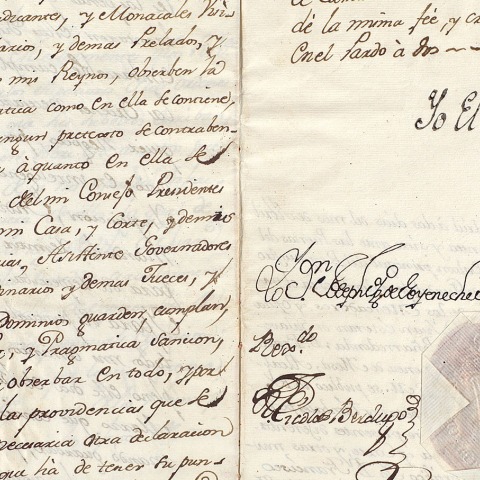 dicantes, y Monacales Vi-
carios, y demas Prelados, y
mis Reynos, obserben la
atica como en ella se contiene,
ningun pretexto se contraben-
a à quanto en ella se
del mi Consejo Presidentes
mi Casa, y Corte, y demas
cias, Asistente Governadores
rdinarios y demas Jueces, y
Dominios guarden, cumplan,
y Pragmatica Sancion,
obserbar en todo, y por
las providencias que se
necesaria otra declaracion
que hà de tener su pun-
dé la misma fée, y cr
En el Pardo à dos
Yo El
Yo Dn Joseph de Goyeneche
Rexdo
Nicolas Berdugo